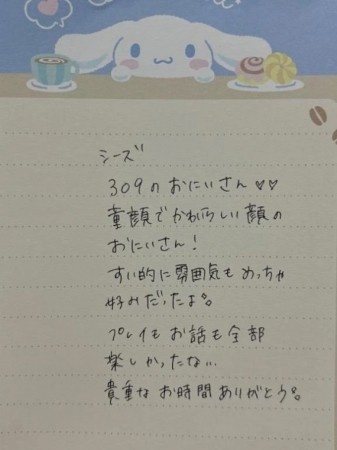 シーズ
309のおにいさん♡♡
童顔でかわいらしい顔の
おにいさん!
すい的に雰囲気もめっちゃ
好みだったよ。
プレイもお話も全部
楽しかったない…
貴重なお時間ありがとう。